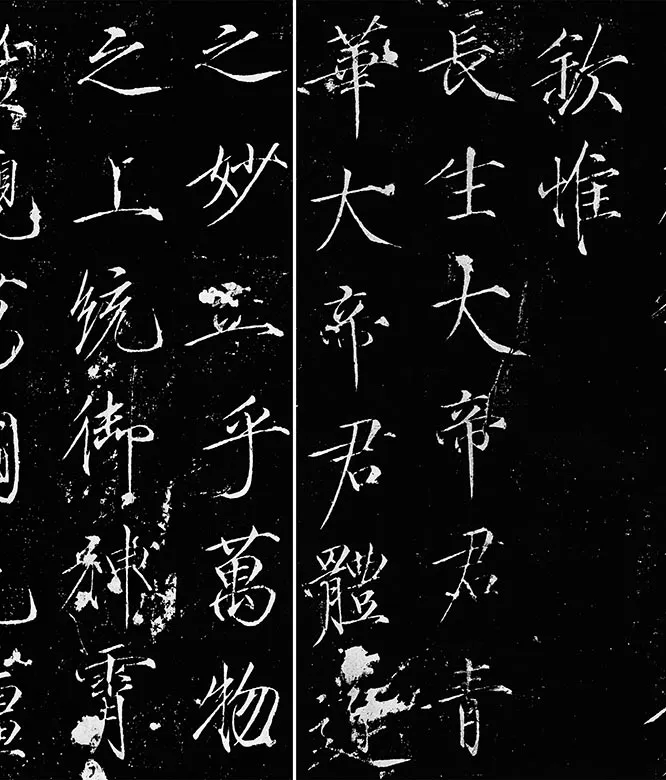 欽惟
長生大帝君青
華大帝君體道
之妙立乎萬物
之上統御神霄